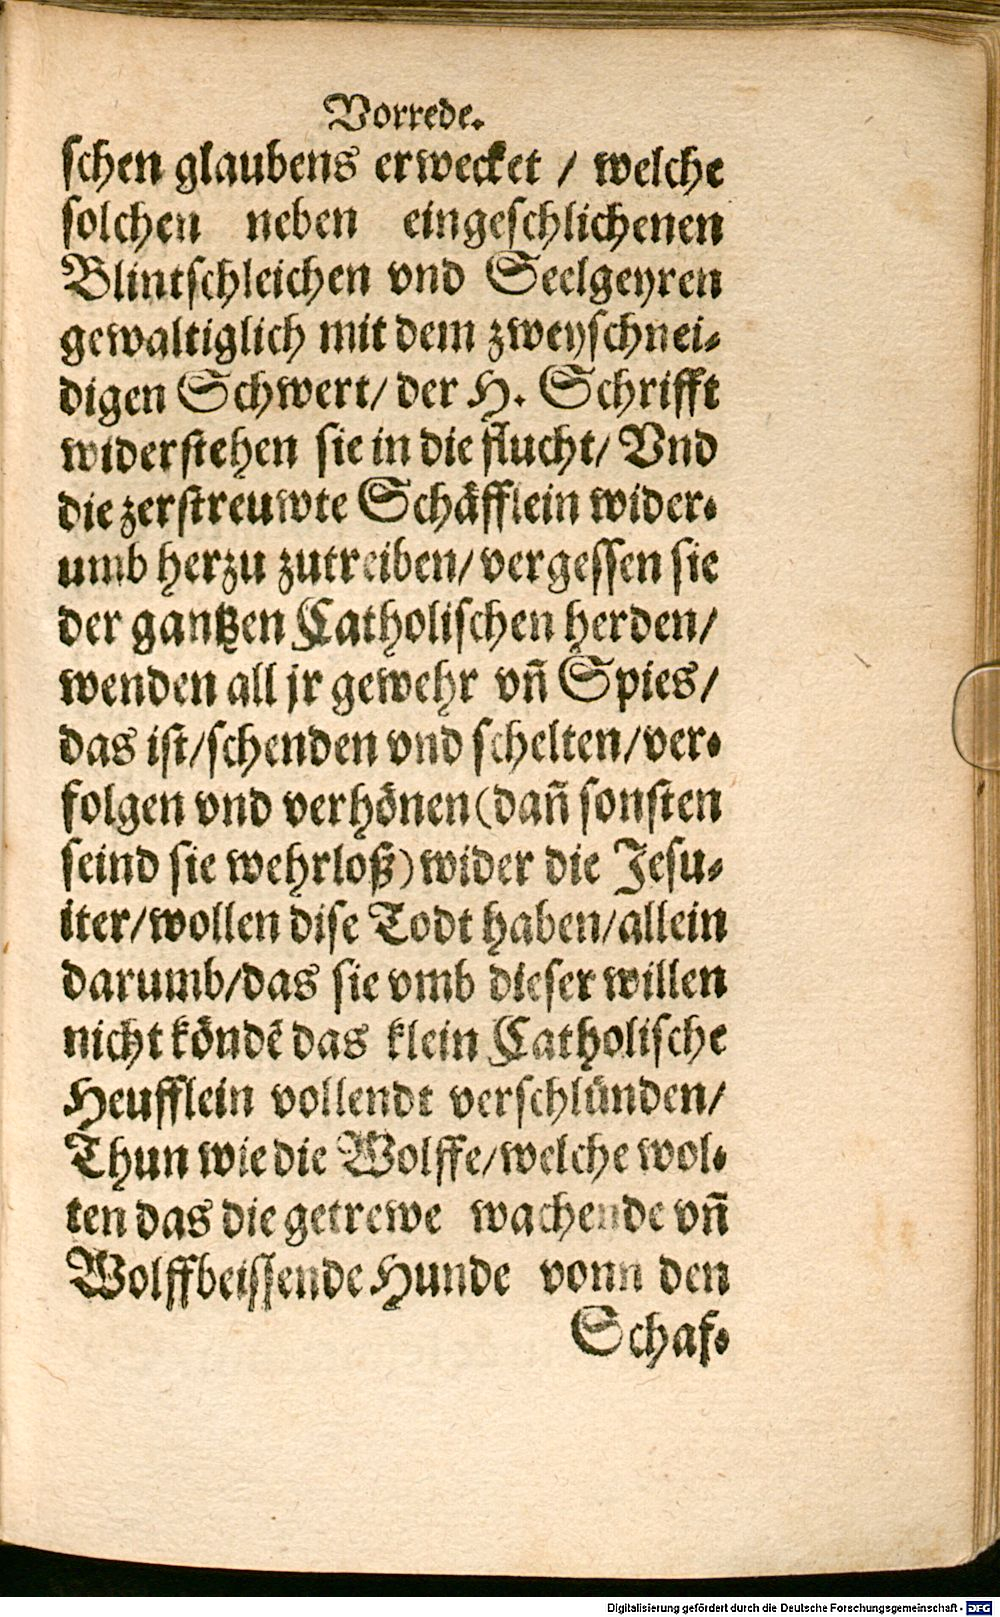 Vorrede.
schen glaubens erwecket / welche
solchen neben eingeschlichenen
Blintschleichen vnd Seelgeyren
gewaltiglich mit dem zweyschnei-
digen Schwert/ der H. Schrifft
widerstehen sie in die flucht/ Vnd
die zerstreuwte Schäfflein wider-
umb herzu zutreiben/ vergessen sie
der gantzen Catholischen herden/
wenden all jr gewehr vñ Spies/
das ist/schenden vnd schelten/ver-
folgen vnd verhönen(dañ sonsten
seind sie wehrloß)wider die Jesu-
iter/wollen dise Todt haben/allein
darumb/das sie vmb dieser willen
nicht köndẽ das klein Catholische
Heufflein vollendt verschlünden/
Thun wie die Wolffe/welche wol-
ten das die getrewe wachende vñ
Wolffbeissende Hunde vonn den
Schaf-
Digitalisierung gefördert durch die Deutsche Forschungsgemeinschaft - DFG